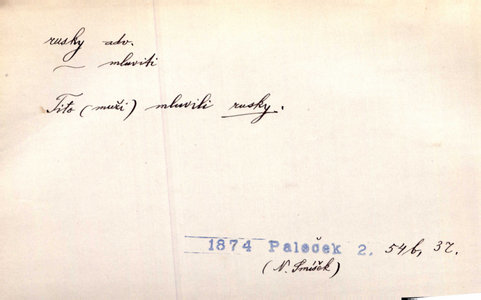 rusky adv.
~ mluviti
Tito (muži) mluvili rusky.
1874 Paleček 2. 54b, 32.
(N. Smíšek)